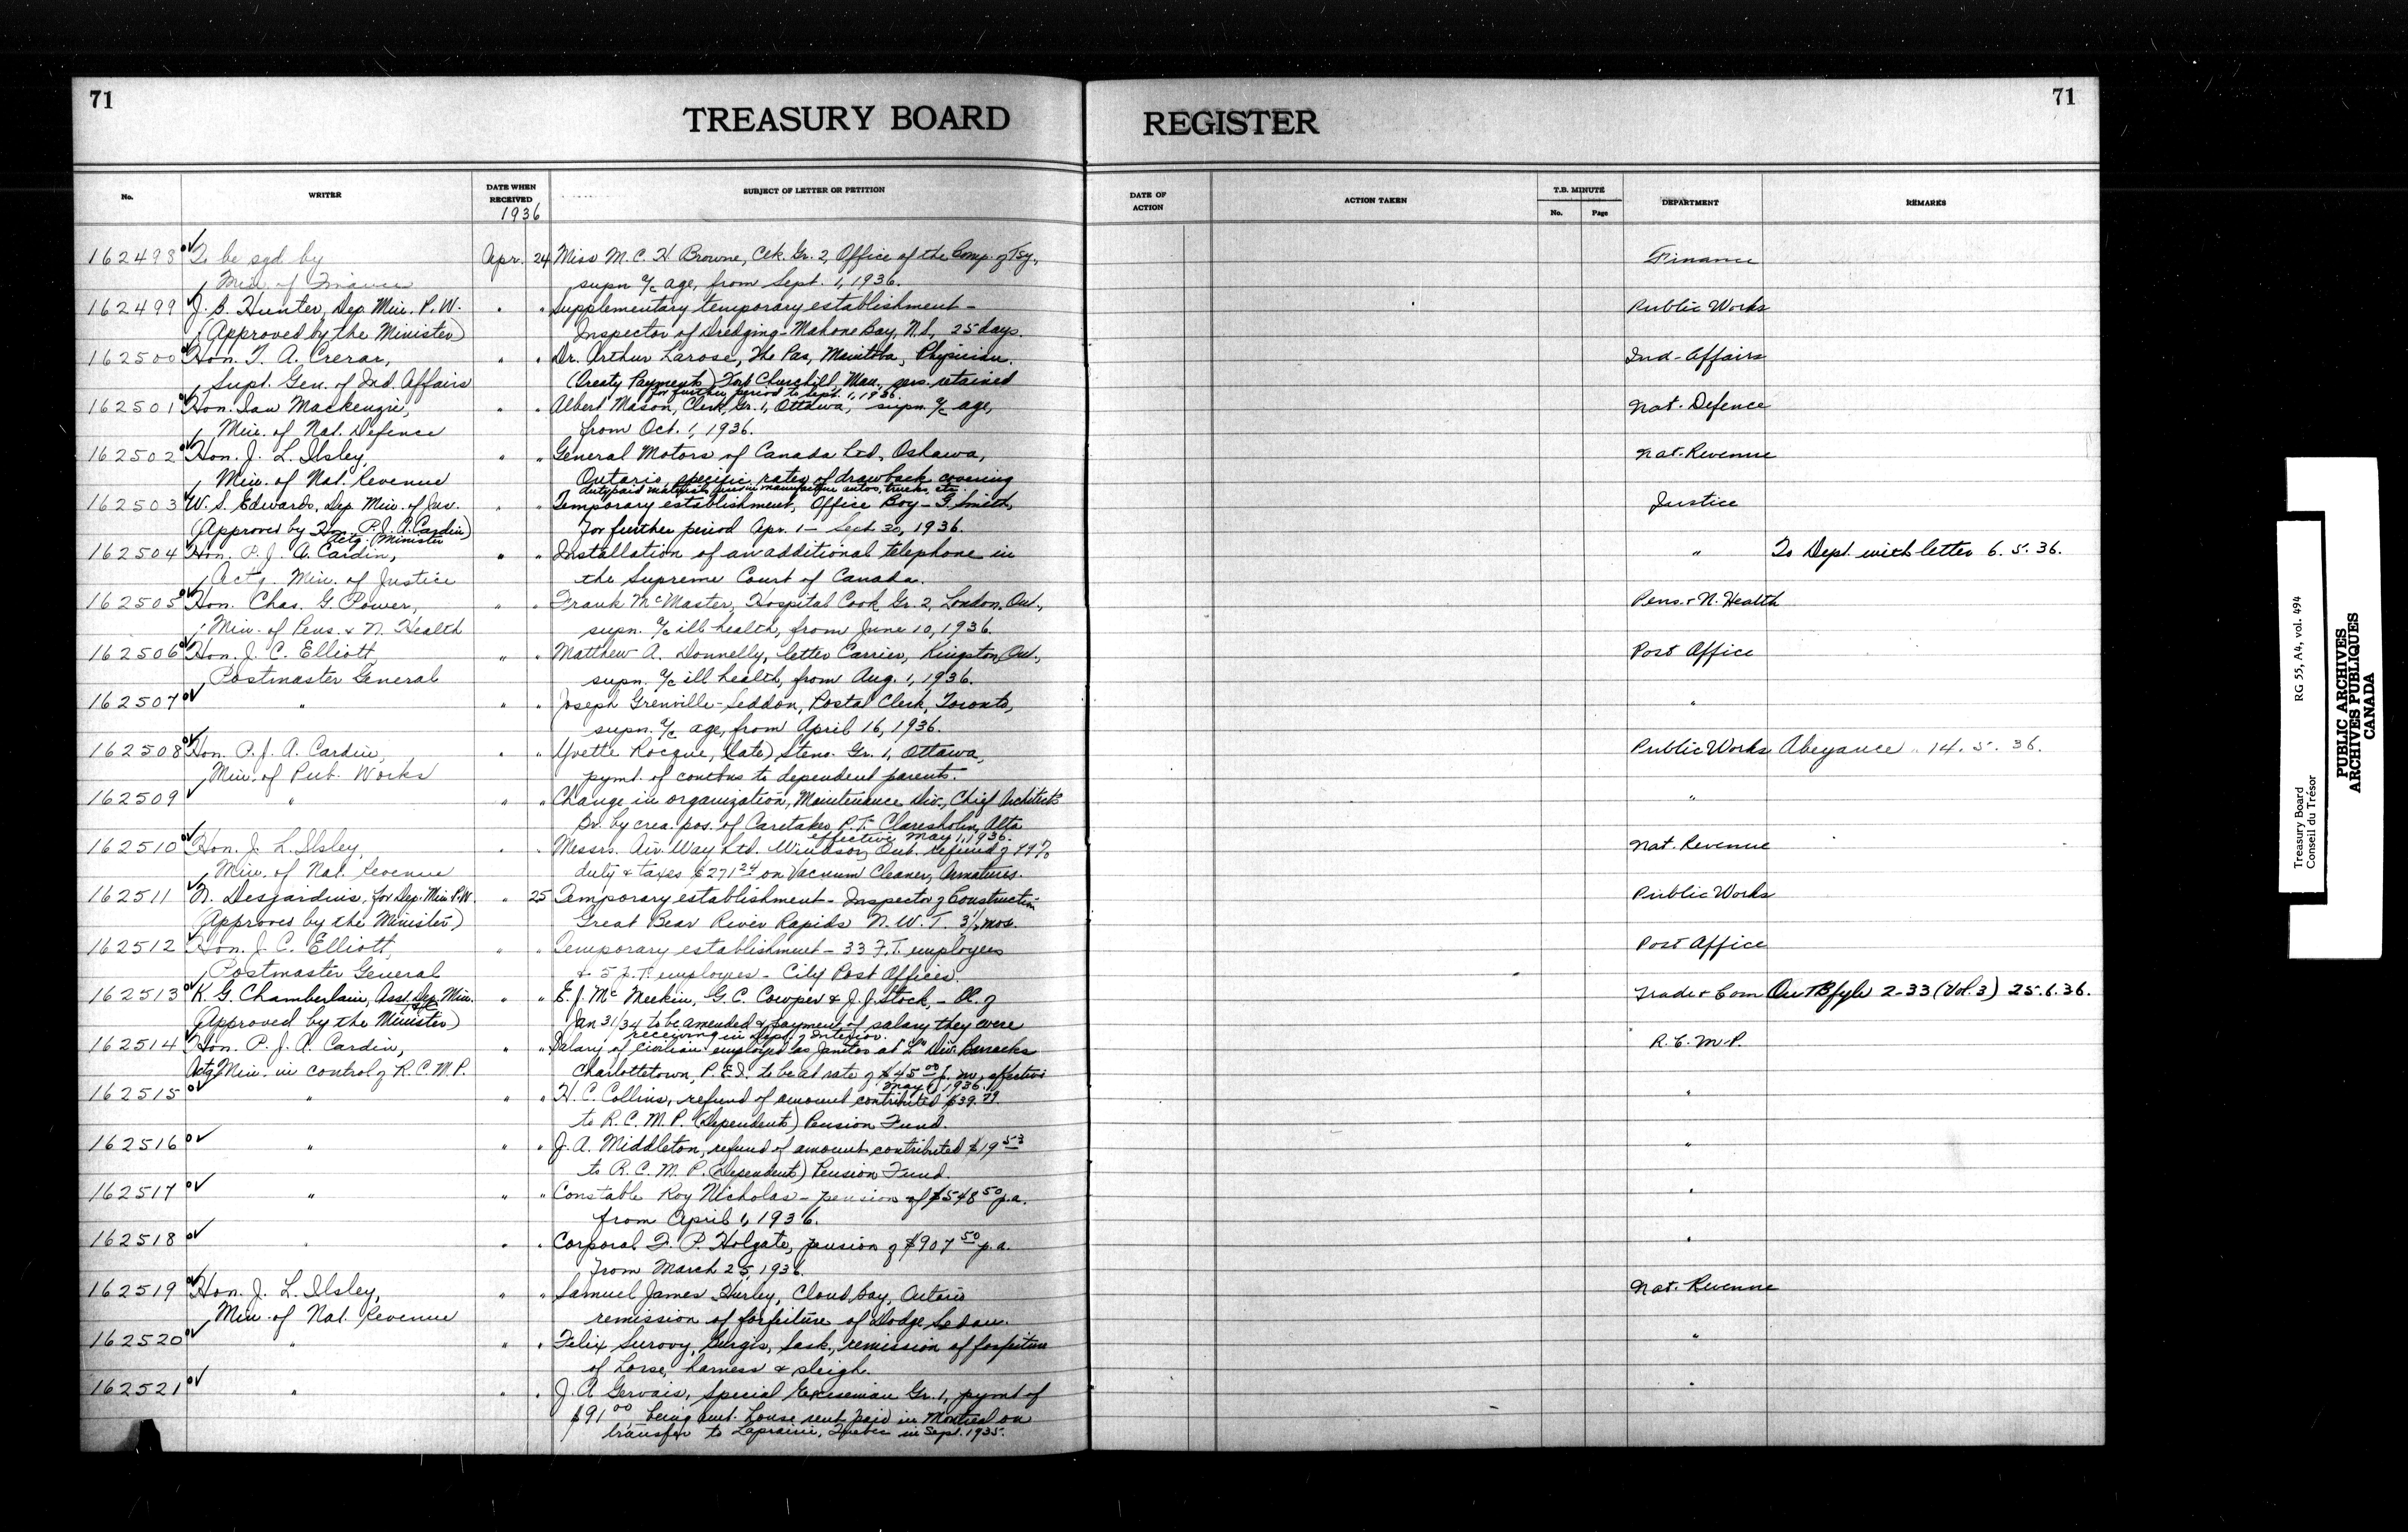 71
71
TREASURY BOARD
REGISTER
No.
WRITER
DATE WHEN RECEIVED
1936
SUBJECT OF LETTER OR PETITION
DATE OF ACTION
ACTION TAKEN
T.B. MINUTE
No.
Page
DEPARTMENT
REMARKS
162498 To be sgd by Apr. 24 Miss M. C. H Browne, Clk. Gr. 2, Office of the Comp. of Tsy., Finance
Min. of Finance supn a/c age, from Sept. 1, 1936.
162499 J. B. Hunter, Dep. Min. P. W. " " Supplementary temporary establishment - Public Works
(Approved by the Minister) Inspector of Dredging - Mahone Bay, N.S. 25 days.
162500 Hon. T. A. Crerar, " " Dr. Arthur Larose, The Pas, Manitoba, Physician. Ind. Affairs
Supt. Gen. of Ind. Affairs (Treaty Payments) Fort Churchill, Man., sers. retained
for further period to Sept. 1, 1936.
162501 Hon. Ian Mackenzie, " " Albert Mason, Clerk, Gr. 1, Ottawa, supn. a/c age, Nat. Defence
Min. of Nat. Defence from Oct. 1, 1936.
162502 Hon. J. L. Ilsley, " " General Motors of Canada Ltd, Oshawa, Nat. Revenue
Min. of Nat. Revenue Ontario, specific rates of drawback covering
dutypaid materials used in manufacture autos, trucks, etc.
162503 W. S. Edwards, Dep Min. of Jus. " " Temporary establishment, Office Boy - G. Smith, Justice
(Approved by Hon. P. J. A. Cardin) for further period Apr. 1 - Sept 30, 1936.
Actg. Minister
162504 Hon. P. J. A. Cardin, " " Installation of an additional telephone in " To Dept. with letter 6. 5. 36.
Actg. Min. of Justice the Supreme Court of Canada.
162505 Hon. Chas. G. Power, " " Frank McMaster, Hospital Cook Gr. 2, London, Ont., Pens. & N. Health
Min. of Pens. & N. Health supn. a/c ill health, from June 10, 1936.
162506 Hon. J. C. Elliott " " Matthew A. Donnelly, letter Carrier, Kingston, Ont., Post Office
Postmaster General supn. a/c ill health, from Aug. 1, 1936.
162507 " " " Joseph Grenville-Seddon, Postal Clerk, Toronto, "
supn. a/c age, from April 16, 1936.
162508 Hon. P. J. A. Cardin, " " Yvette Rocque, (late) Steno. Gr. 1, Ottawa, Public Works Abeyance 14. 5. 36.
Min. of Pub. Works pymt. of contbns to dependent parents.
162509 " " " Change in organization, Maintenance Div., Chief Architect's "
Br. by crea. pos. of Caretaker P.T. Claresholm, Alta
effective May 1, 1936.
162510 Hon. J. L. Ilsley, " " Messrs. Air-Way Ltd. Windsor, Ont. refund of 99% Nat. Revenue
Min. of Nat. Revenue duty & taxes $271.24 on Vacuum Cleaner, Armatures.
162511 N. Desjardins, for Dep. Min P.W. " 25 Temporary establishment - Inspector of Construction Public Works
(Approved by the Minister) Great Bear River Rapids N. W. T. 3½ mos.
162512 Hon. J. C. Elliott, " " Temporary establishment - 33 F.T. employees Post Office
Postmaster General & 5 P.T. employees - City Post Offices.
162513 K. G. Chamberlain, Asst. Dep. Min. " " E. J. McMeekin, G. C. Cowper & J. J. Stock, - OC. of Trade & Com On TB fyle 2-33 (Vol. 3) 25.6.36.
T&C
Approved by the Minister) Jan 31/34 to be amended & payment of salary they were
receiving in Dept. of Interior.
162514 Hon. P. J. A. Cardin, " " Salary of civilian employed as Janitor at "L" Div. Barracks R. C. M. P.
Actg. Min. in control of R. C. M. P. Charlottetown, P. E. I. to be at rate of $45.00 p. m., effective
May 1, 1936.
162515 " " " H. C. Collins, refund of amount contributed $39.79 "
to R. C. M. P. (Dependent) Pension Fund.
162516 " " " J. A. Middleton, refund of amount contributed $19.53 "
to R. C. M. P. (Dependent) Pension Fund.
162517 " " " Constable Roy Nicholas - pension of $548.50 p.a. "
from April 1, 1936.
162518 " " " Corporal F. P. Holgate, pension of $907.50 p.a. "
from March 25, 1936.
162519 Hon. J. L. Ilsley, " " Samuel James Hurley, Cloud Bay, Ontario Nat. Revenue
Min. of Nat. Revenue remission of forfeiture of Dodge Sedan.
162520 " " " Felix Surovy, Sask., remission of forfeiture "
of horse, harness & sleigh.
162521 " " " J. A Gervais, Special Exciseman Gr. 1, pymt of "
$91.00 being amt. house rent paid in Montreal on
transfer to Laprairie, Quebec in Sept. 1935.
Treasury Board RG 55, A4, vol. 494
Conseil du Trésor
PUBLIC ARCHIVES
ARCHIVES PUBLIQUES
CANADA